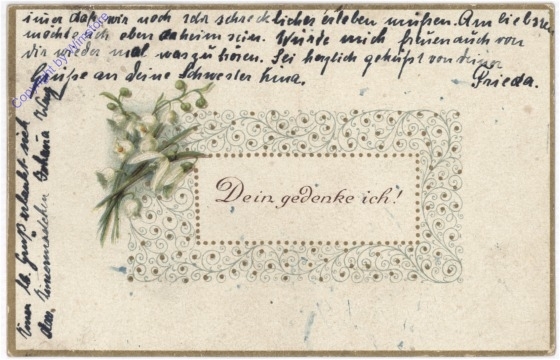 immer daß wir noch sehr schreckliches erleben müßen. Am liebsten
möchte ich eben daheim sein. Würde mich freuen auch von
dir wieder mal was zu hören. Sei herzlich geküßt von deiner
Grüße an deine Schwester Frieda.
Dein gedenke ich!
Gruß erlaubt sich
Copyright by Winstore